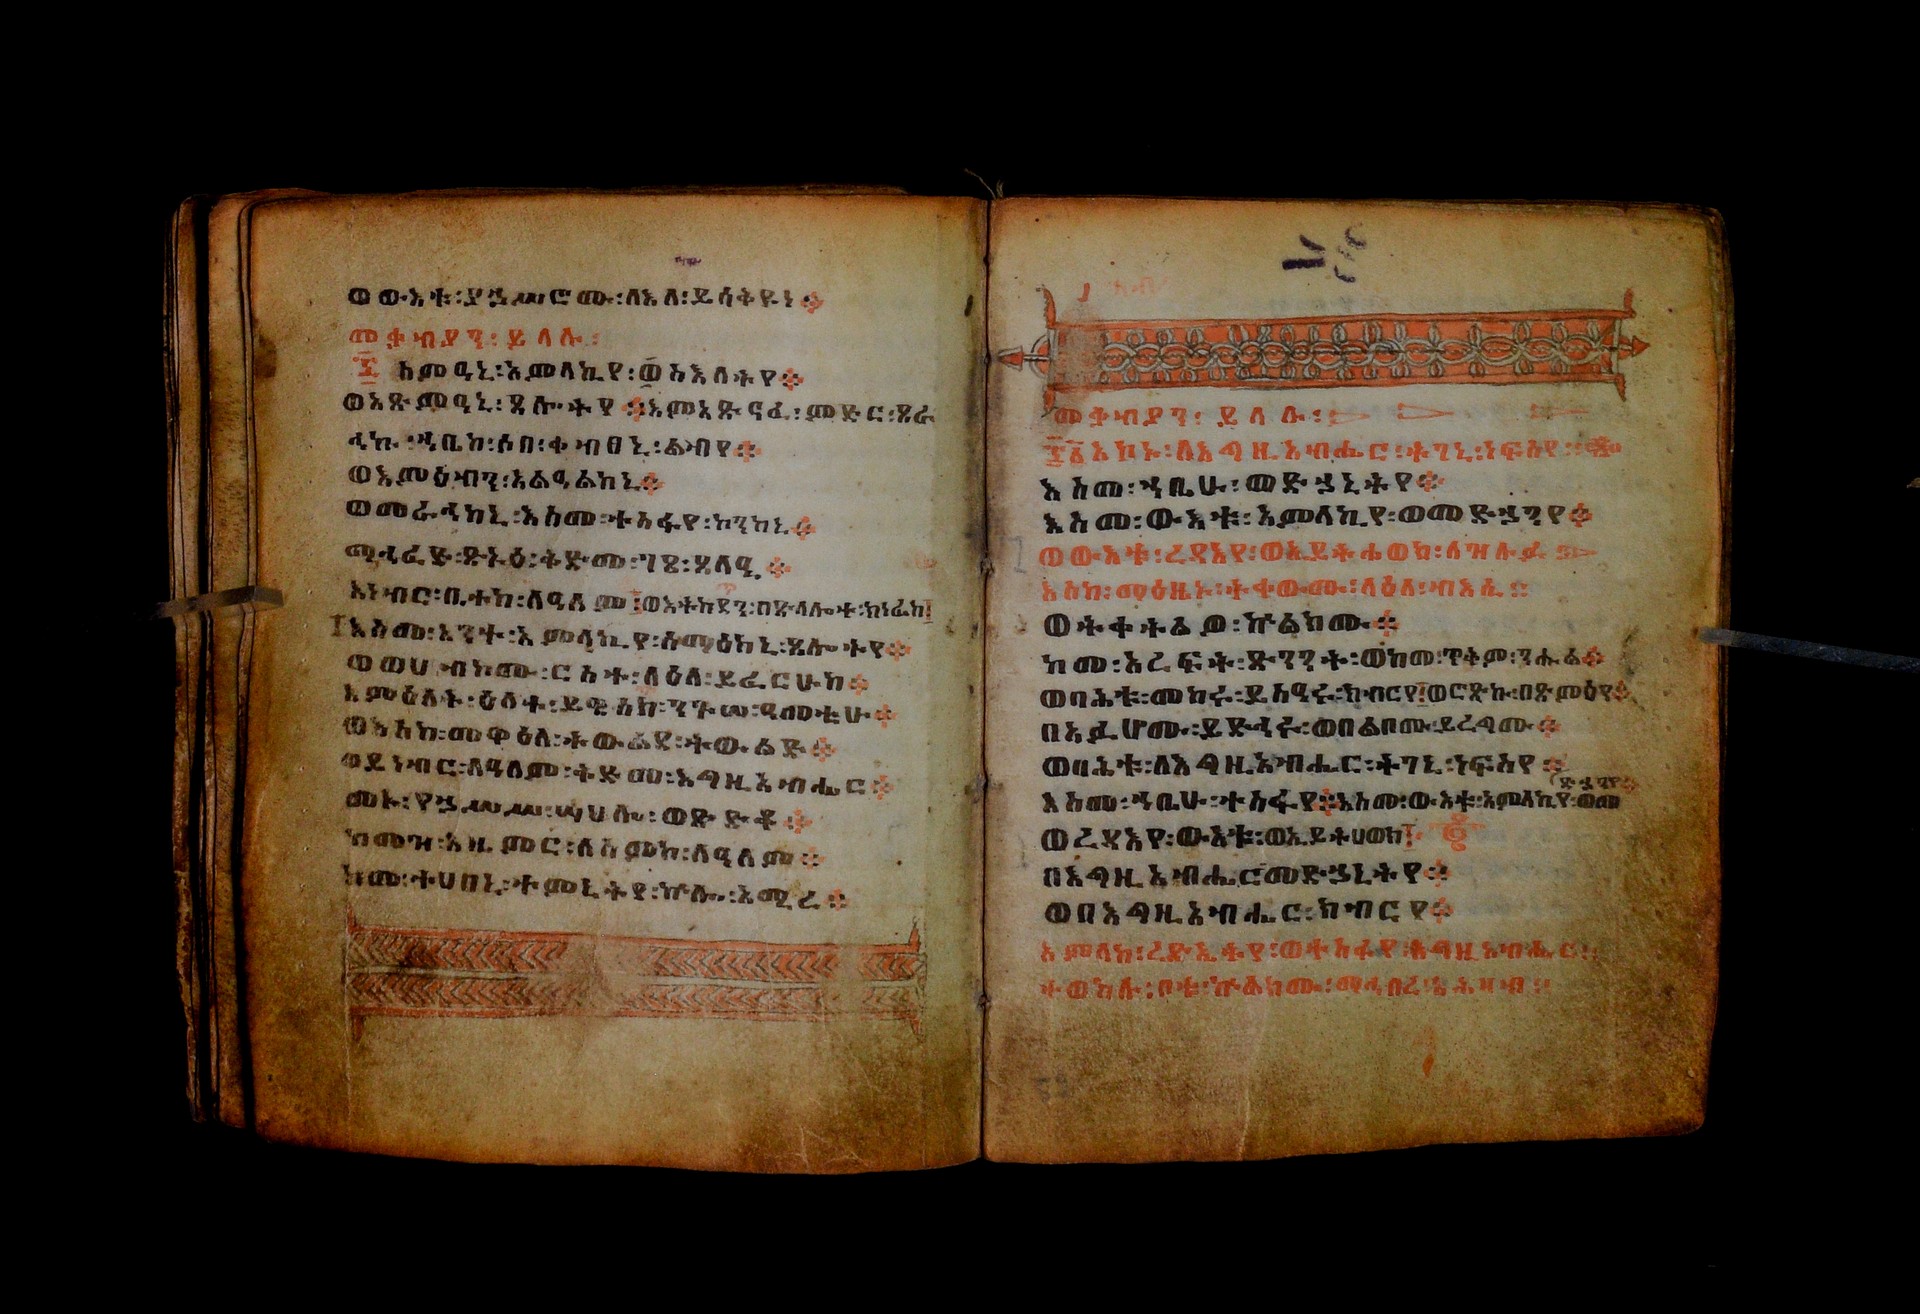 ወውእቱ፡ያኀሥሮሙ፡ለእለ፡ይሳቅዩነ፨
መቃብያን፡ይለሉ፡
፷ ስምዓኒ፡አምላኪየ፡ወስእለትየ፨
ወአጽምዓኒ፡ጸሎትየ፨እምአጽናፈ፡ምድር፡ጸራ
ኅኩ፡ኀቤከ፡ሶበ፡ቀብፀኒ፡ልብየ፨
ወእምዕብን፡አልዓልከኒ፨
ወመራኅከኒ፡እስመ፡ተስፋየ፡ኮንከኒ፨
ማኅፈድ፡ጽኑዕ፡ቅድመ፡ገጸ፡ጸላዒ፨
እነብር፡ቤተከ፡ለዓለም፡ወእትከደን፡በጽላሎተ፡ክነፊከ፡
እስመ፡አንተ፡አምላኪየ፡ሰማዕከኒ፡ጸሎትየ፨
ወወሀብኮሙ፡ርስተ፡ለዕለ፡ይፈርሁከ፨
እምዕለት፡ዕለተ፡ይዌስክ፡ንጉሠ፡ዓመቲሁ፨
ወእስከ፡መዋዕለ፡ትውልደ፡ትውልድ፨
ወይነብር፡ለዓለም፡ቅድመ፡እግዚአብሔር፨
መኑ፡የኀሥሥ፡ሣህሎ፡ወጽድቆ፨
ከመዝ፡እዜምር፡ለስምከ፡ለዓለም፨
ከመ፡ተሀበኒ፡ትምኒትየ፡ኵሎ፡አሚረ፨
መቃብያን፡ይለሉ፡
፷፩ አኮኑ፡ለእግዚአብሔር፡ትገኒ፡ነፍስየ፨
እስመ፡ኀቤሁ፡ወድኃኒትየ፨
እስመ፡ውእቱ፡አምላኪየ፡ወመድኃንየ፨
ወውእቱ፡ረዳእየ፡ወኢይትሐወክ፡ለዝሉፉ
እስከ፡ማዕዜኑ፡ትቀውሙ፡ላዕለ፡ብእሲ፨
ወትቀትልዎ፡ኵልክሙ፨
ከመ፡አረፍት፡ጽንንት፡ወከመ፡ጥቅም፡ንሑል፨
ወባሕቱ፡መከሩ፡ይስዓሩ፡ክብርየ፡ወርጽኩ፡በጽምዕየ፨
በአፉሆሙ፡ይድኅሩ፡ወበልቦሙ፡ይረግሙ፨
ወባሕቱ፡ለእግዚአብሔር፡ትገኒ፡ነፍስየ፨
እስመ፡ኀቤሁ፡ተስፋየ፨እስመ፡ውእቱ፡አምላኪየ፡ወመ
ድኃንየ፨
ወረዳእየ፡ውእቱ፡ወኢይትሀወክ፡
በእግዚአብሔር፡መድኃኒትየ፨
ወበእግዚአብሔር፡ክብርየ፨
አምላከ፡ረድኤትየ፡ወተስፋየ፡እግዚአብሔር፨
ተወከሉ፡ቦቱ፡ኵልክሙ፡ማኅበረ፡ሕዝብ፨